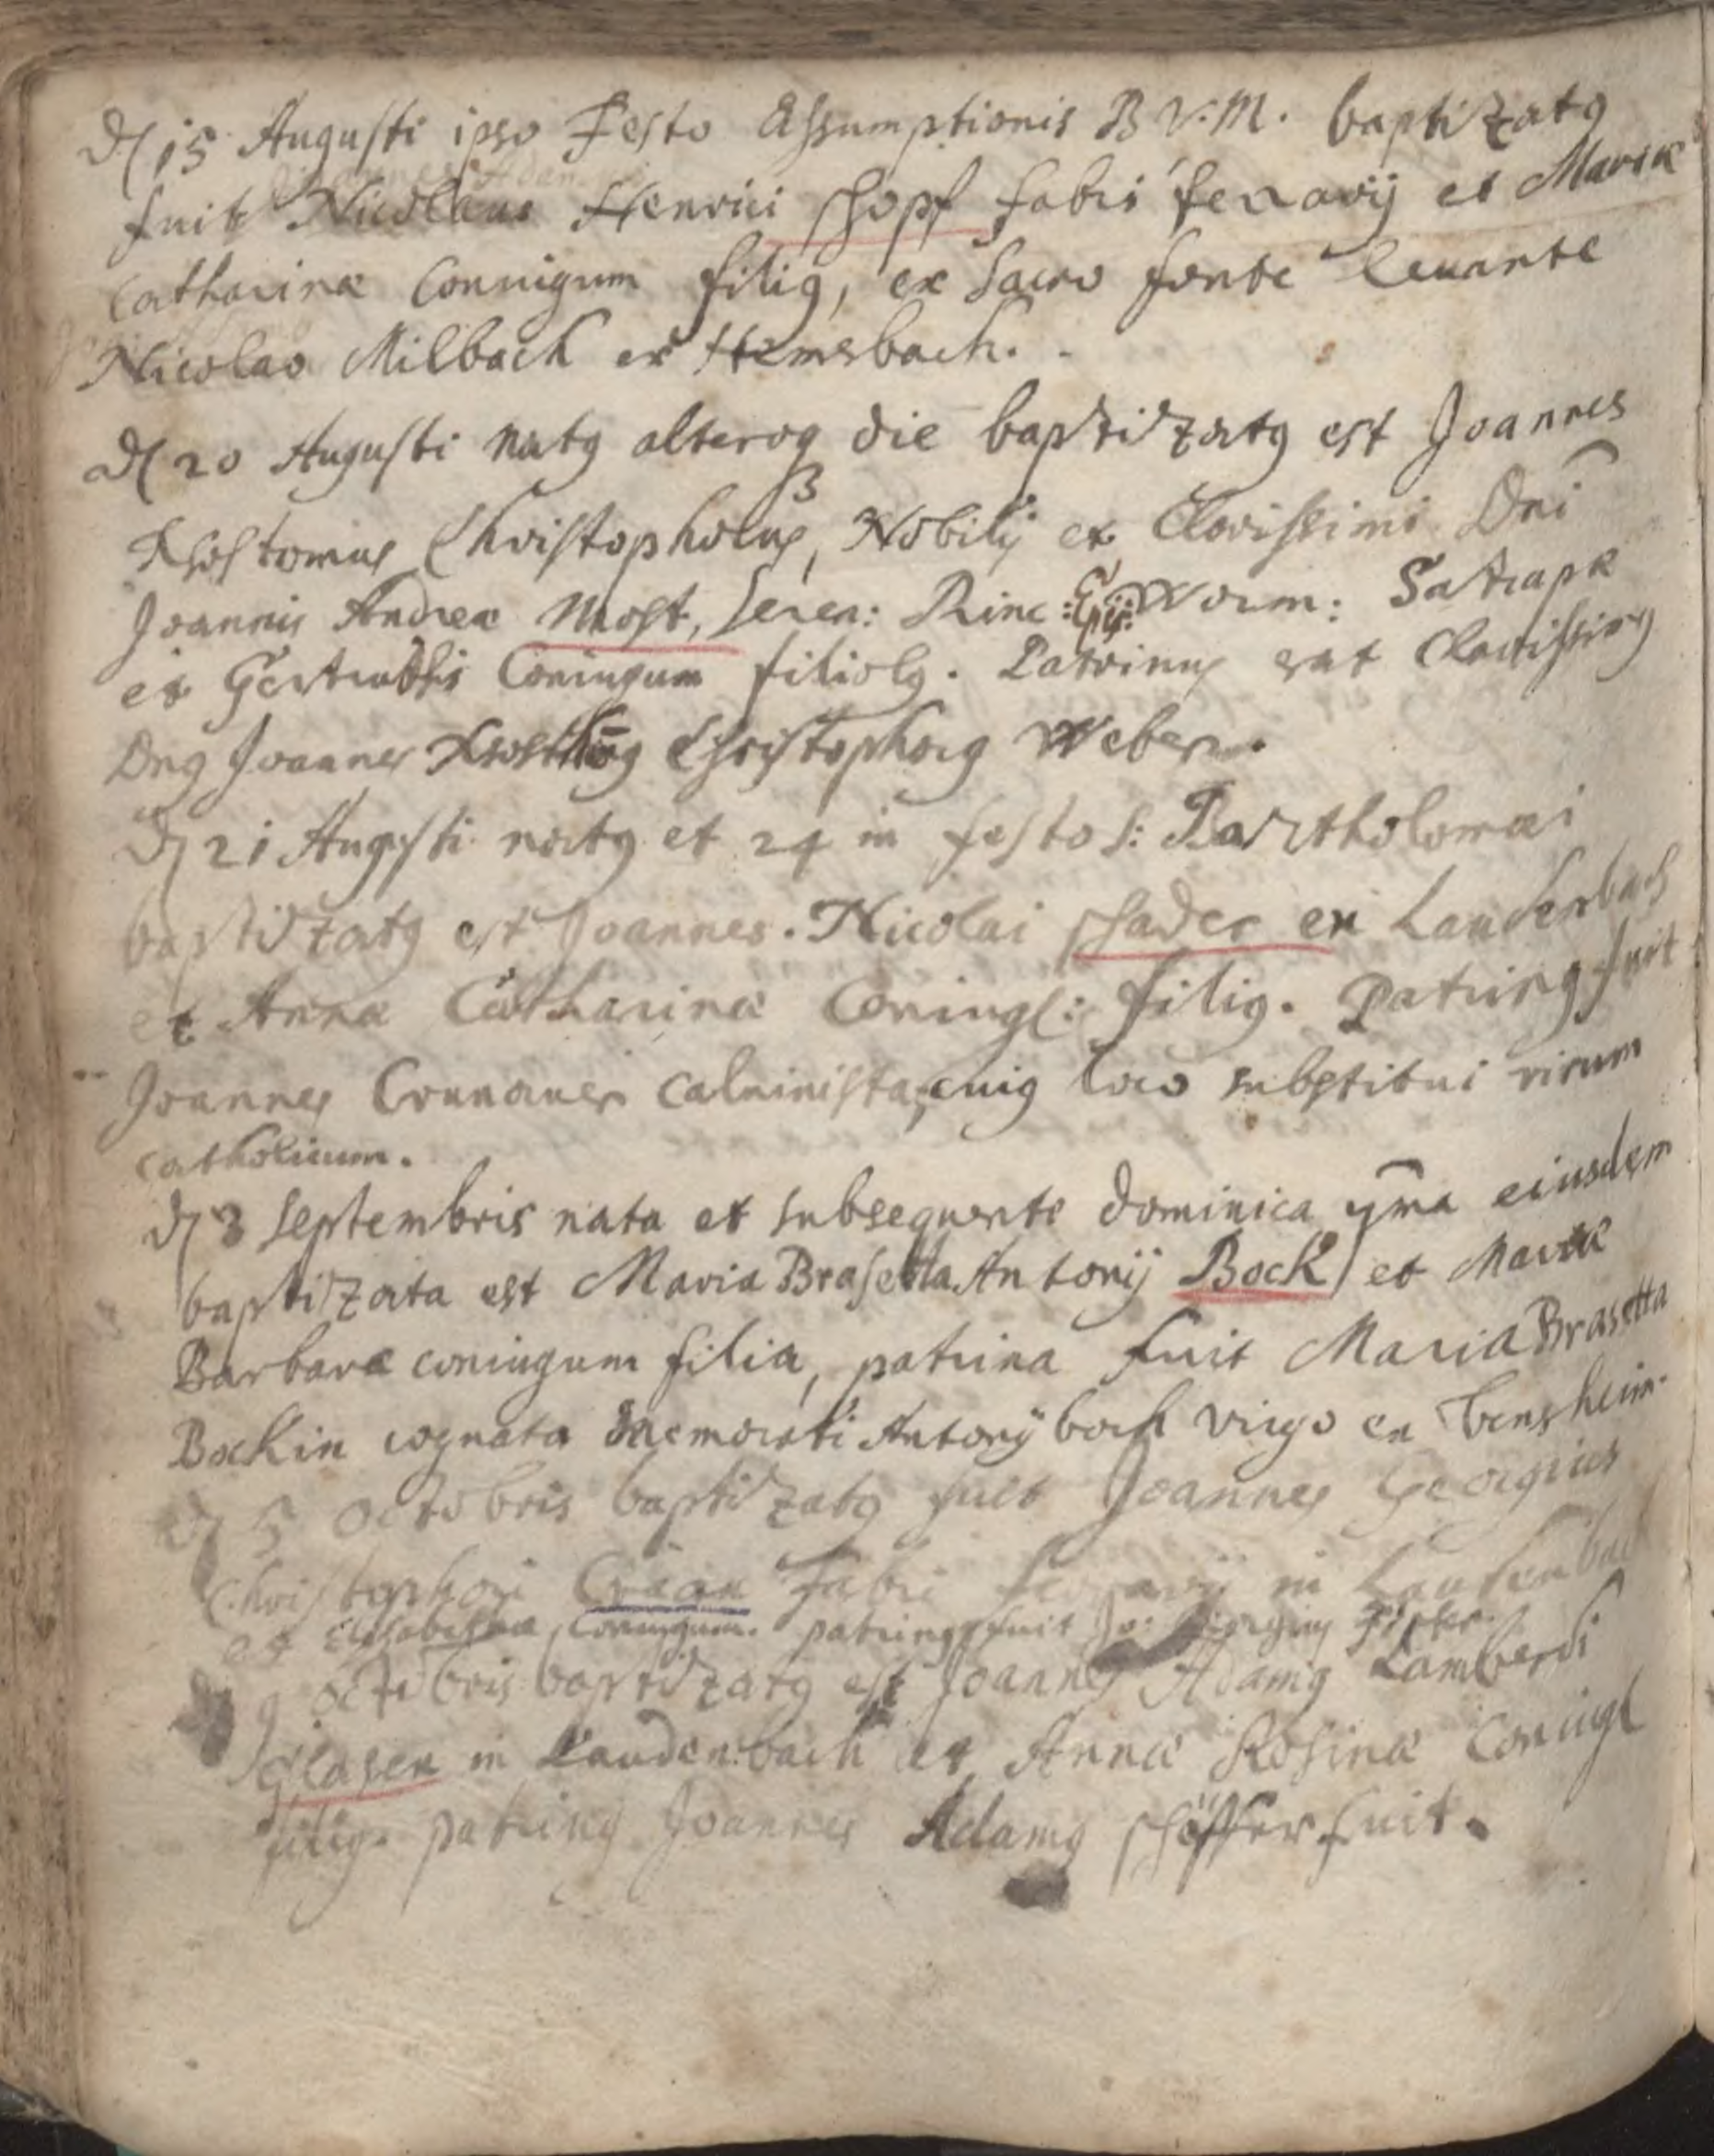 D 15 Augusti ipso Festo Assumptionis B V. M. baptizatus
fuit Nicolaus Henrici schopf fabri ferrarij et Mariæ
Catharinæ Coniugum filius, ex sacro fonte levante
Nicolao Milbach ex Hemsbach.
D 20 Augusti natus alteroq die baptizatus est Joannes
Christophorus, Nobilis et Clarissimi Dni
Joannis Andreæ Most, seren: Princ: Epi: Worm: Satrapæ
et Gertrudis Coniugum filiolus. Patrinus erat Clarissimus
Dnus Joannes Christophorus Weber.
D 21 Augusti natus et 24 in festo S: Bartholomæi
baptizatus est Joannes. Nicolai schader ex Laudenbach
et Annæ Catharinæ Coniug: filius. Patrinus fuit
Joannes Calvinista, cuius loco substitui virum
catholicum.
D 3 septembris nata et subsequente dominica 7ma eiusdem
baptizata est Maria Brasetta Antonij Bock et Mariæ
Barbaræ coniugum filia, patrina fuit Maria Brasetta
Bockin cognata memorati Antonij bock virgo ex bensheim.
D 5 octobris baptizatus fuit Joannes Georgius
Christophori fabri ferrarij in Laudenbach
et Elisabethæ Coniugum. patrinus fuit Jo: Georgius
9 octobris baptizatus est Joannes Adamus Lamberti
Glaser in Laudenbach et Annæ Rosinæ Coniug
filius. patrinus Joannes Adamus schöffer fuit.